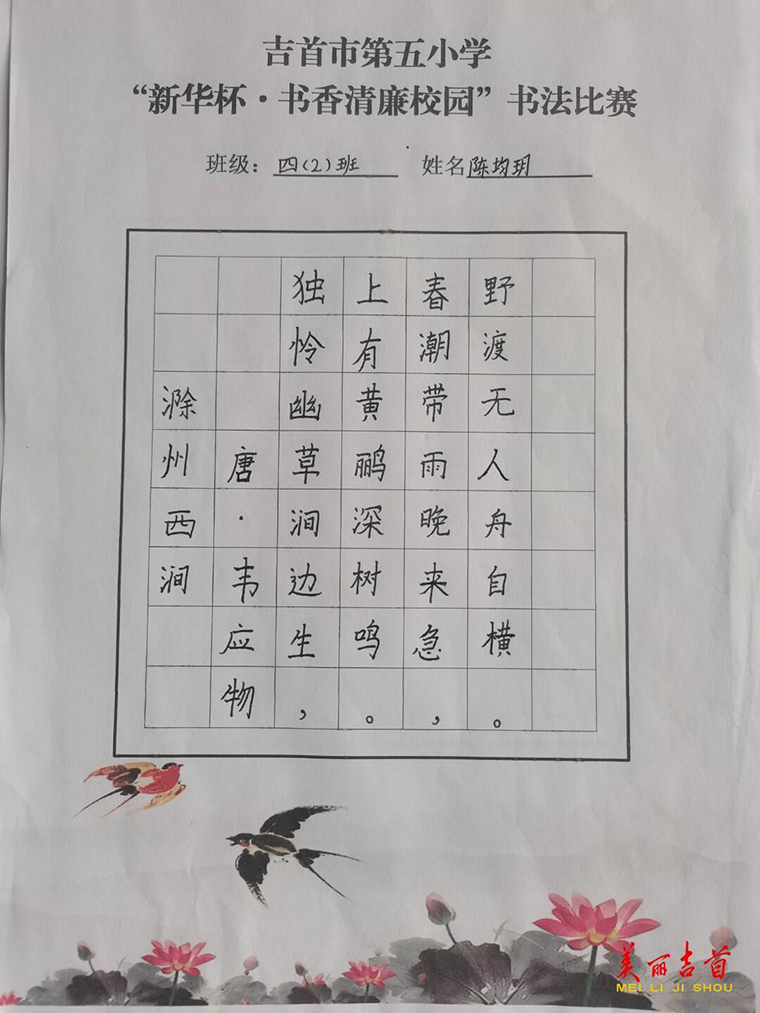 吉首市第五小学
“新华杯·书香清廉校园”书法比赛
班级：四(2)班 姓名陈均玥
滁州西涧
唐·韦应物
独怜幽草涧边生，
上有黄鹂深树鸣。
春潮带雨晚来急，
野渡无人舟自横。
美丽吉首
MEI LI JI SHOU